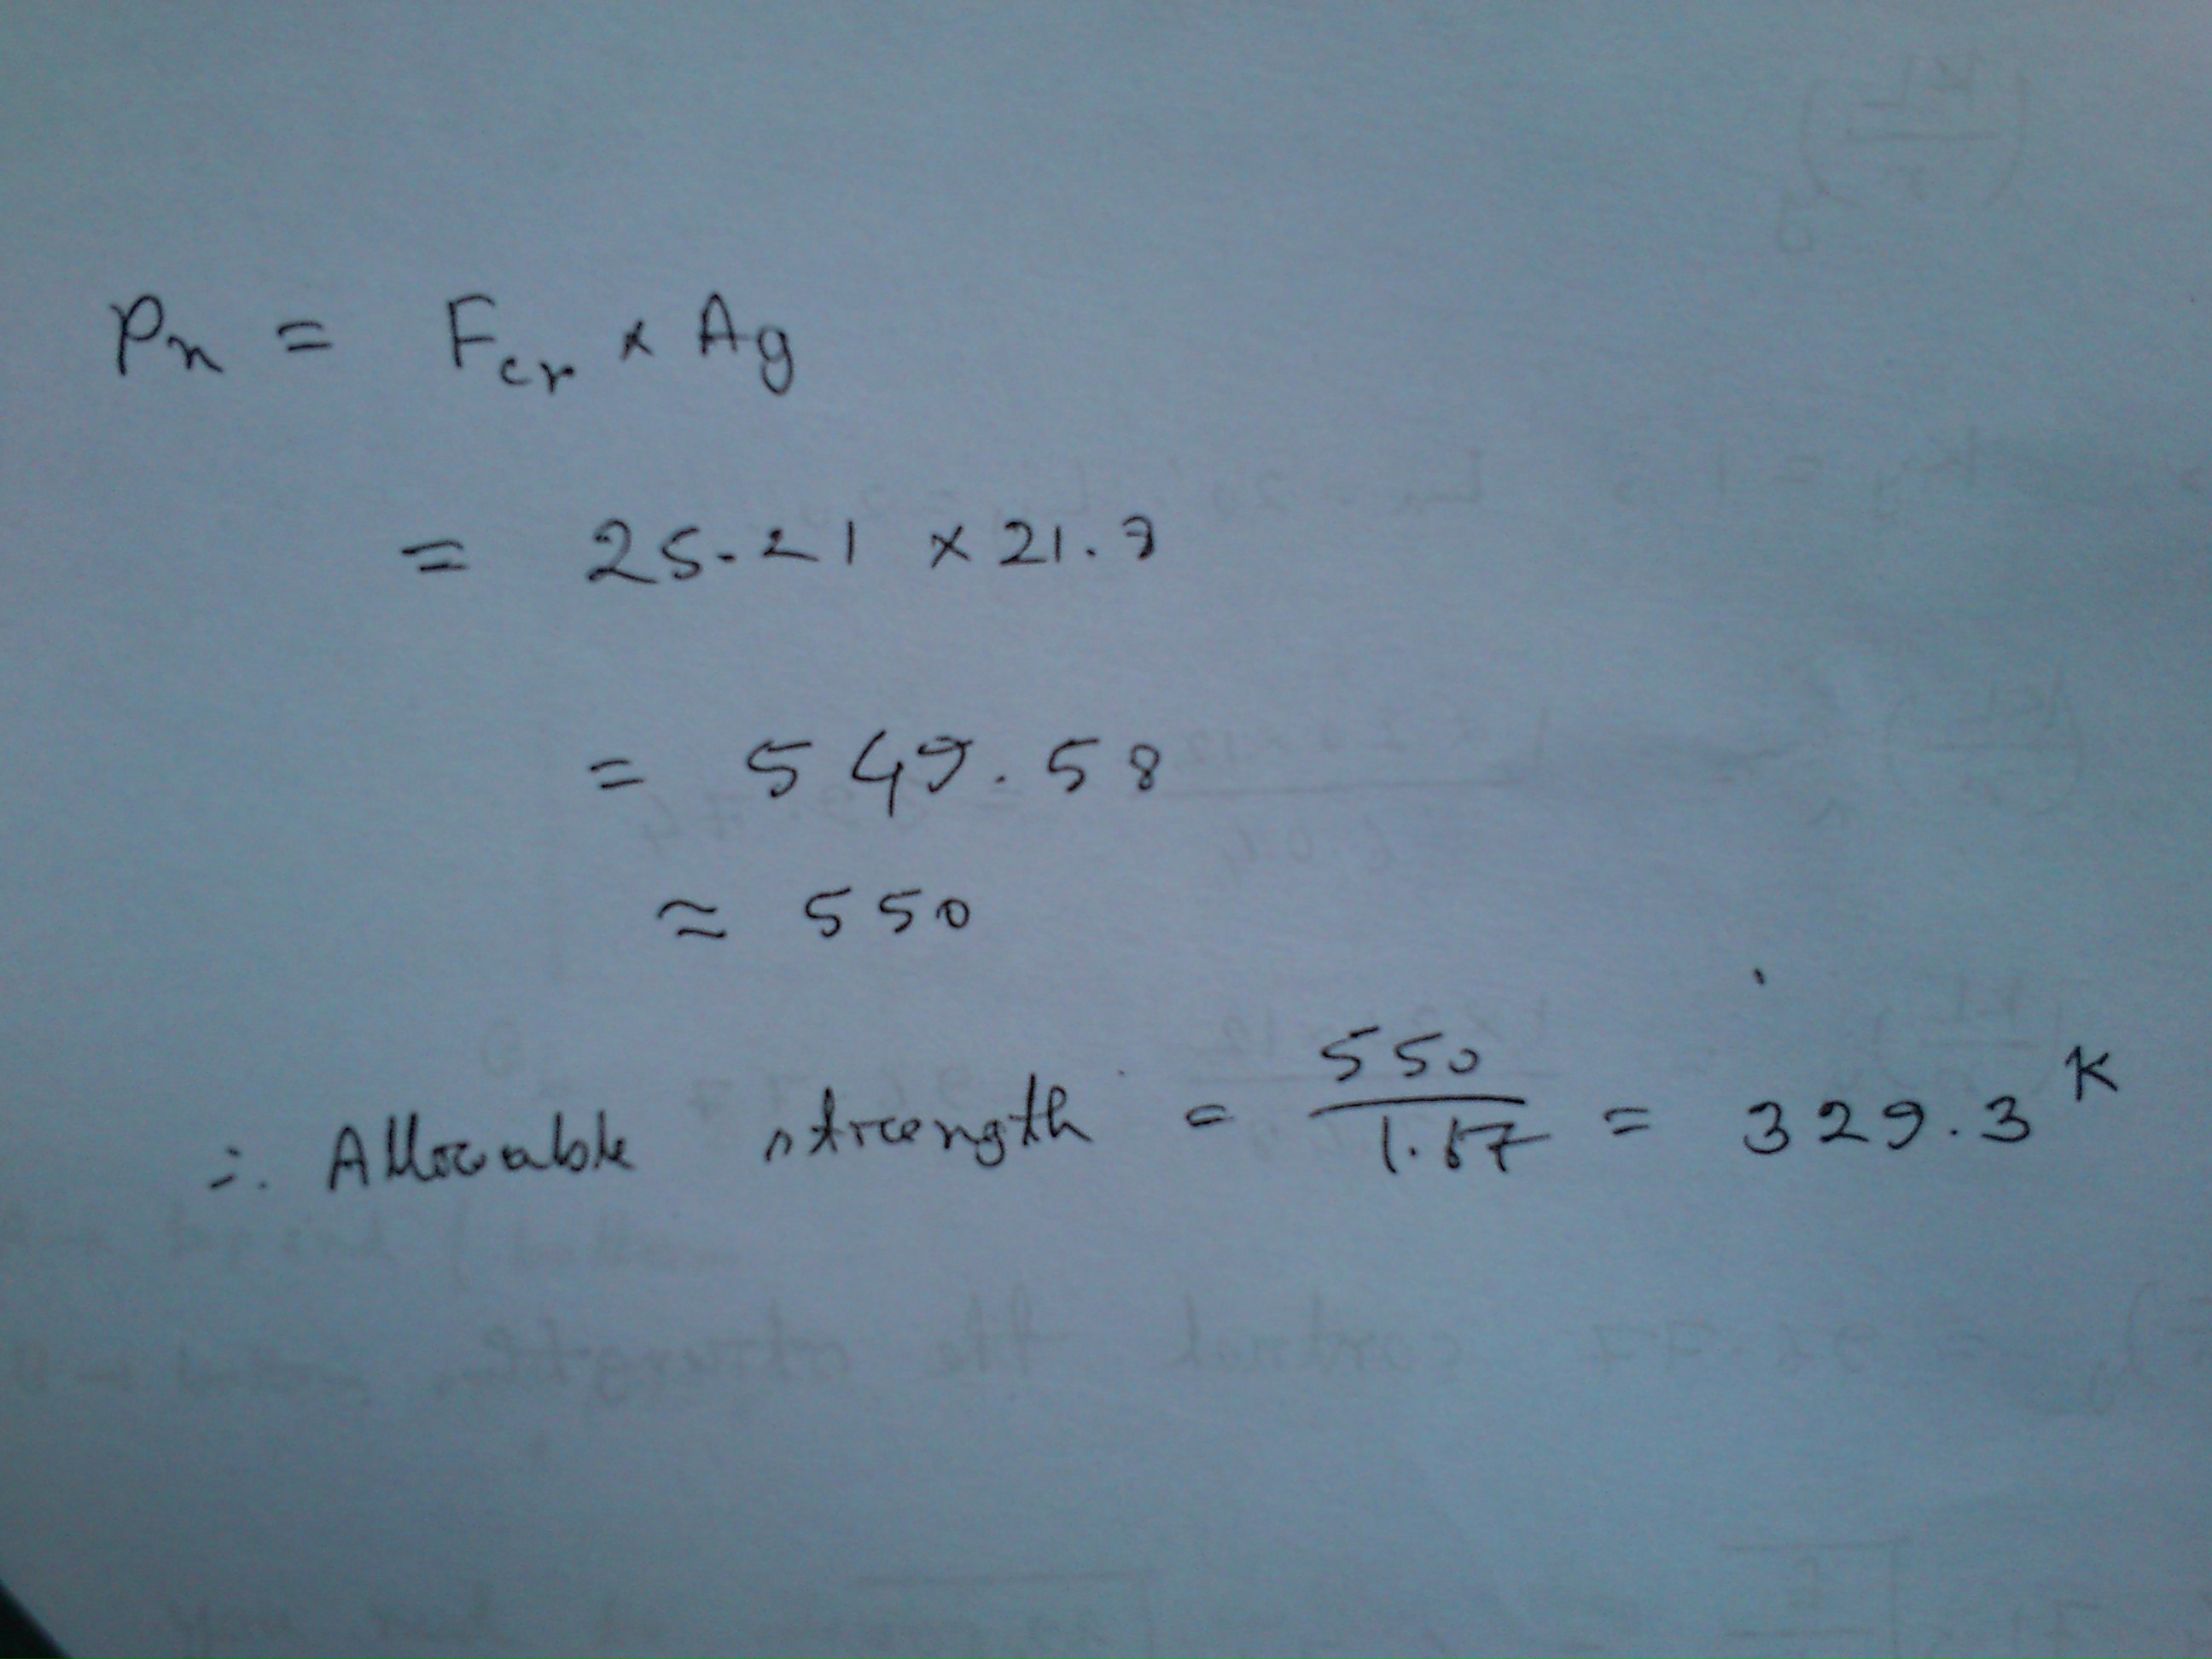 Pn = Fcr × Ag
= 25.21 × 21.8
= 549.58
≈ 550
∴ Allowable strength = 550/1.67 = 329.3 K